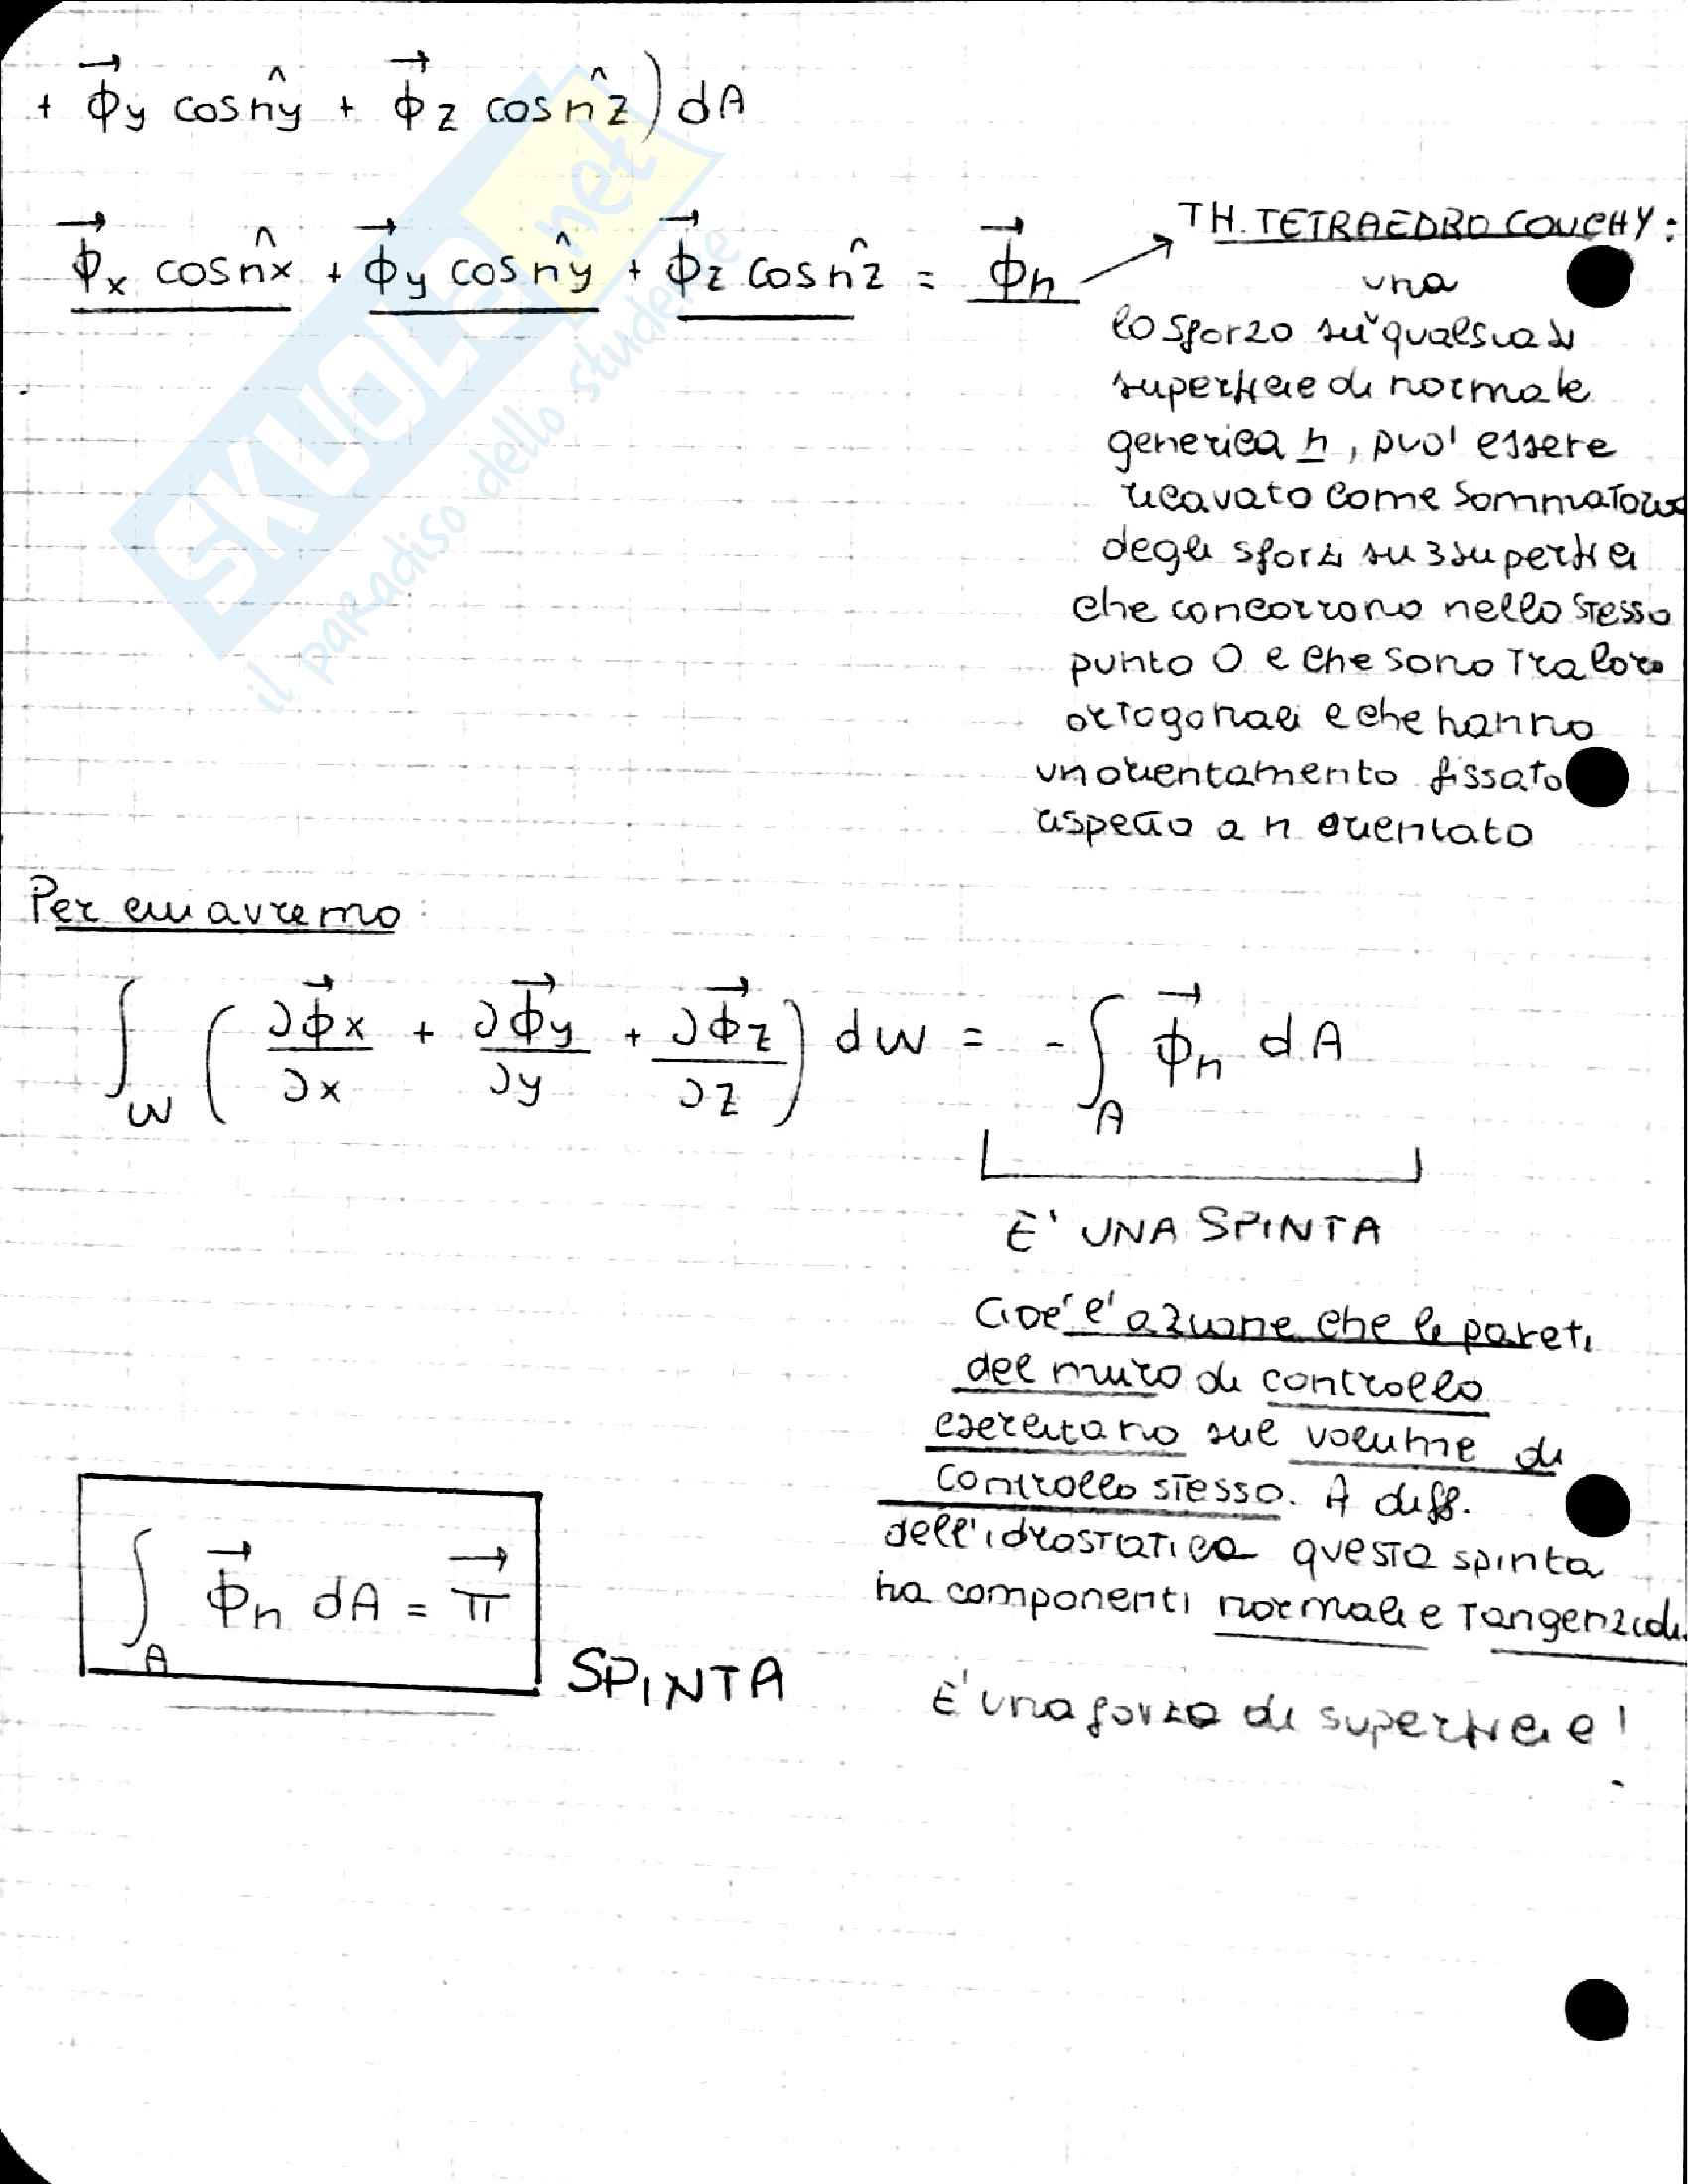 + →Φy cos n̂y + →Φz cos n̂z) dA
→Φx cos n̂x + →Φy cos n̂y + →Φz cos n̂z = →Φn
TH. TETRAEDRO COUCHY:
una
lo sforzo su qualsiasi
superficie di normale
generica n, puo' essere
ricavato come sommatoria
degli sforzi su 3 superfici
che concorrono nello stesso
punto O e che sono tra loro
ortogonali e che hanno
un orientamento fissato
rispetto a n orientato
Per cui avremo:
∫W (∂→Φx/∂x + ∂→Φy/∂y + ∂→Φz/∂z) dW = - ∫A →Φn dA
E' UNA SPINTA
Cioe' e' azione che le pareti
del muro di controllo
esercitano sul volume di
controllo stesso. A diff.
dell'idrostatica questa spinta
ha componenti normali e tangenziali.
∫A →Φn dA = →π
SPINTA
E' una forza di superficie!
SKUOLA.net
il paradiso dello studente